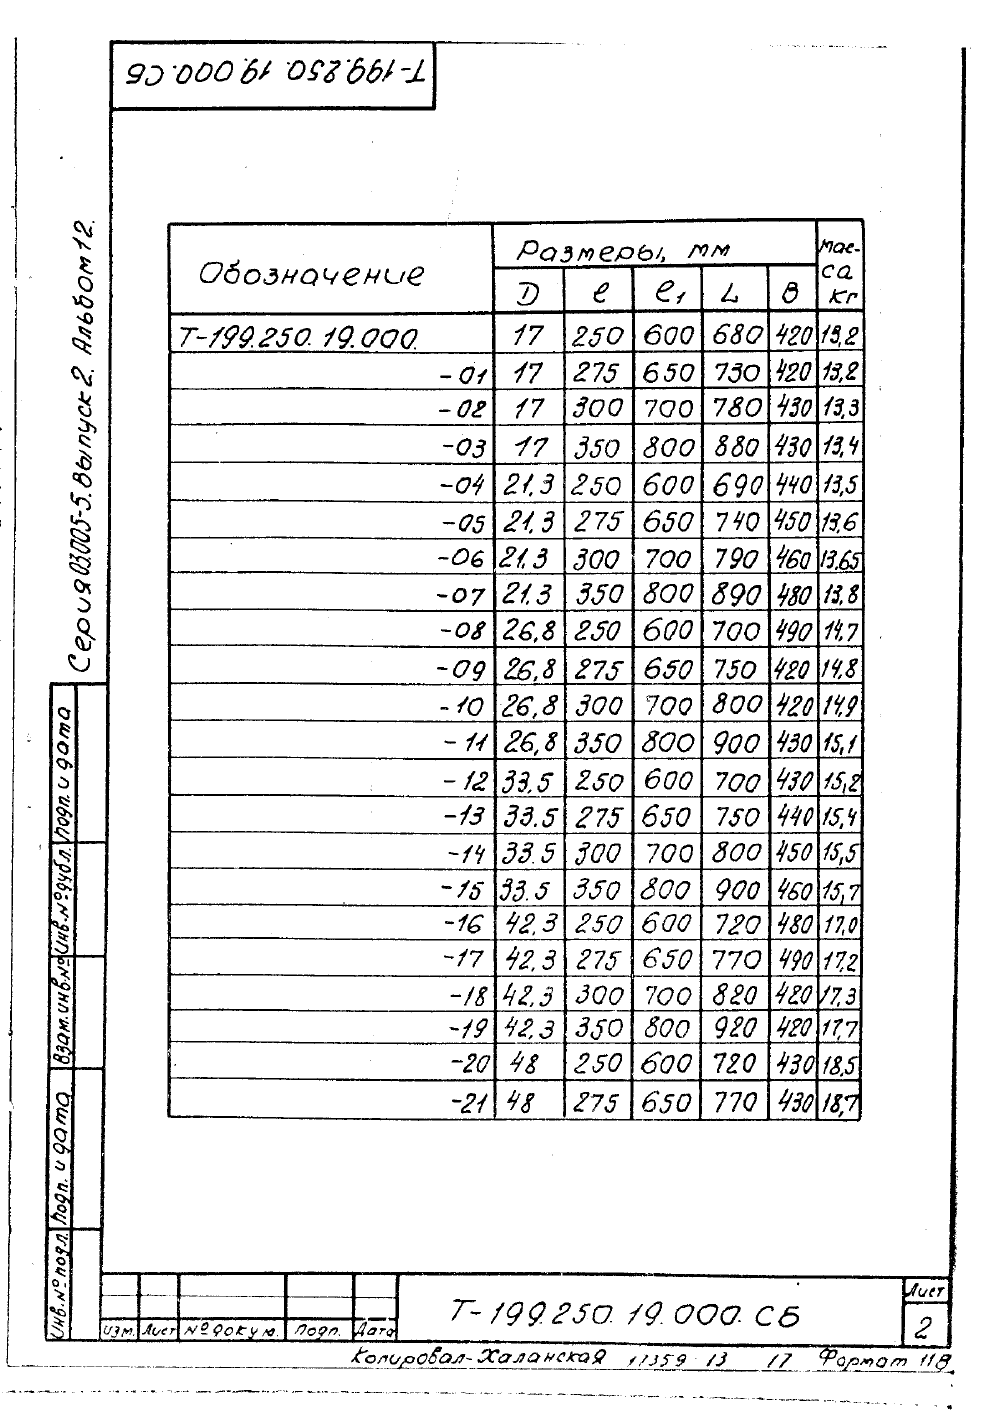 Т-199.250.19.000.СБ
Серия 03.005-5. Выпуск 2. Альбом 12.
Обозначение Размеры, мм Мас-са кг
D ℓ ℓ1 L В
Т-199.250.19.000. 17 250 600 680 420 13,2
-01 17 275 650 730 420 13,2
-02 17 300 700 780 430 13,3
-03 17 350 800 880 430 13,4
-04 21.3 250 600 690 440 13,5
-05 21.3 275 650 740 450 13,6
-06 21.3 300 700 790 460 13,65
-07 21.3 350 800 890 480 13,8
-08 26,8 250 600 700 490 14,7
-09 26,8 275 650 750 420 14,8
-10 26,8 300 700 800 420 14,9
-11 26,8 350 800 900 430 15,1
-12 33,5 250 600 700 430 15,2
-13 33.5 275 650 750 440 15,4
-14 33.5 300 700 800 450 15,5
-15 33.5 350 800 900 460 15,7
-16 42,3 250 600 720 480 17,0
-17 42,3 275 650 770 490 17,2
-18 42,3 300 700 820 420 17,3
-19 42,3 350 800 920 420 17,7
-20 48 250 600 720 430 18,5
-21 48 275 650 770 430 18,7
Подп. и дата
Инв.№ дубл.
Взам.инв.№
Подп. и дата
Инв.№ подл.
Изм. Лист № докум. Подп. Дата
Т-199.250.19.000.СБ
Лист
2
Копировал-Халанская 17359 13 17 Формат 11В